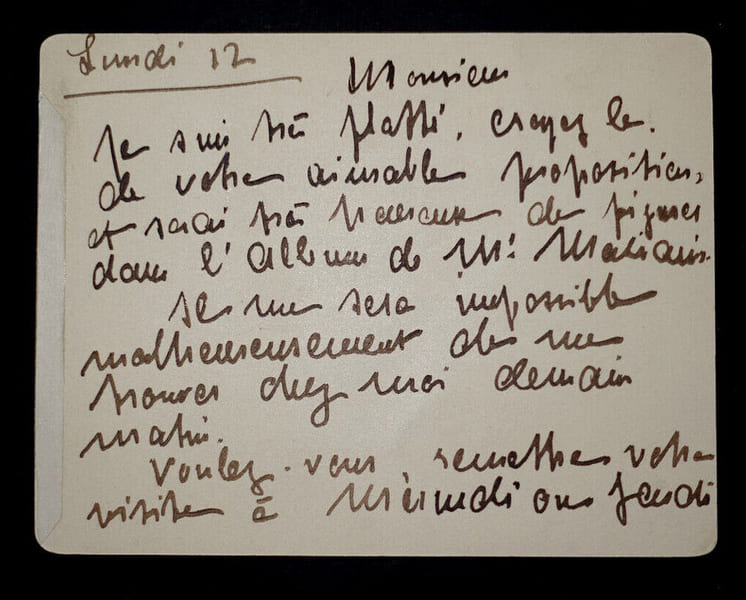 Lundi 12
Monsieur
Je suis très flatté, croyez le.
de votre aimable proposition,
et serai très heureux de figurer
dans l'Album de Mr. Mariani.
Il me sera impossible
malheureusement de me
trouver chez moi demain
matin.
Voulez-vous, remettre votre
visite à Mercredi ou Jeudi